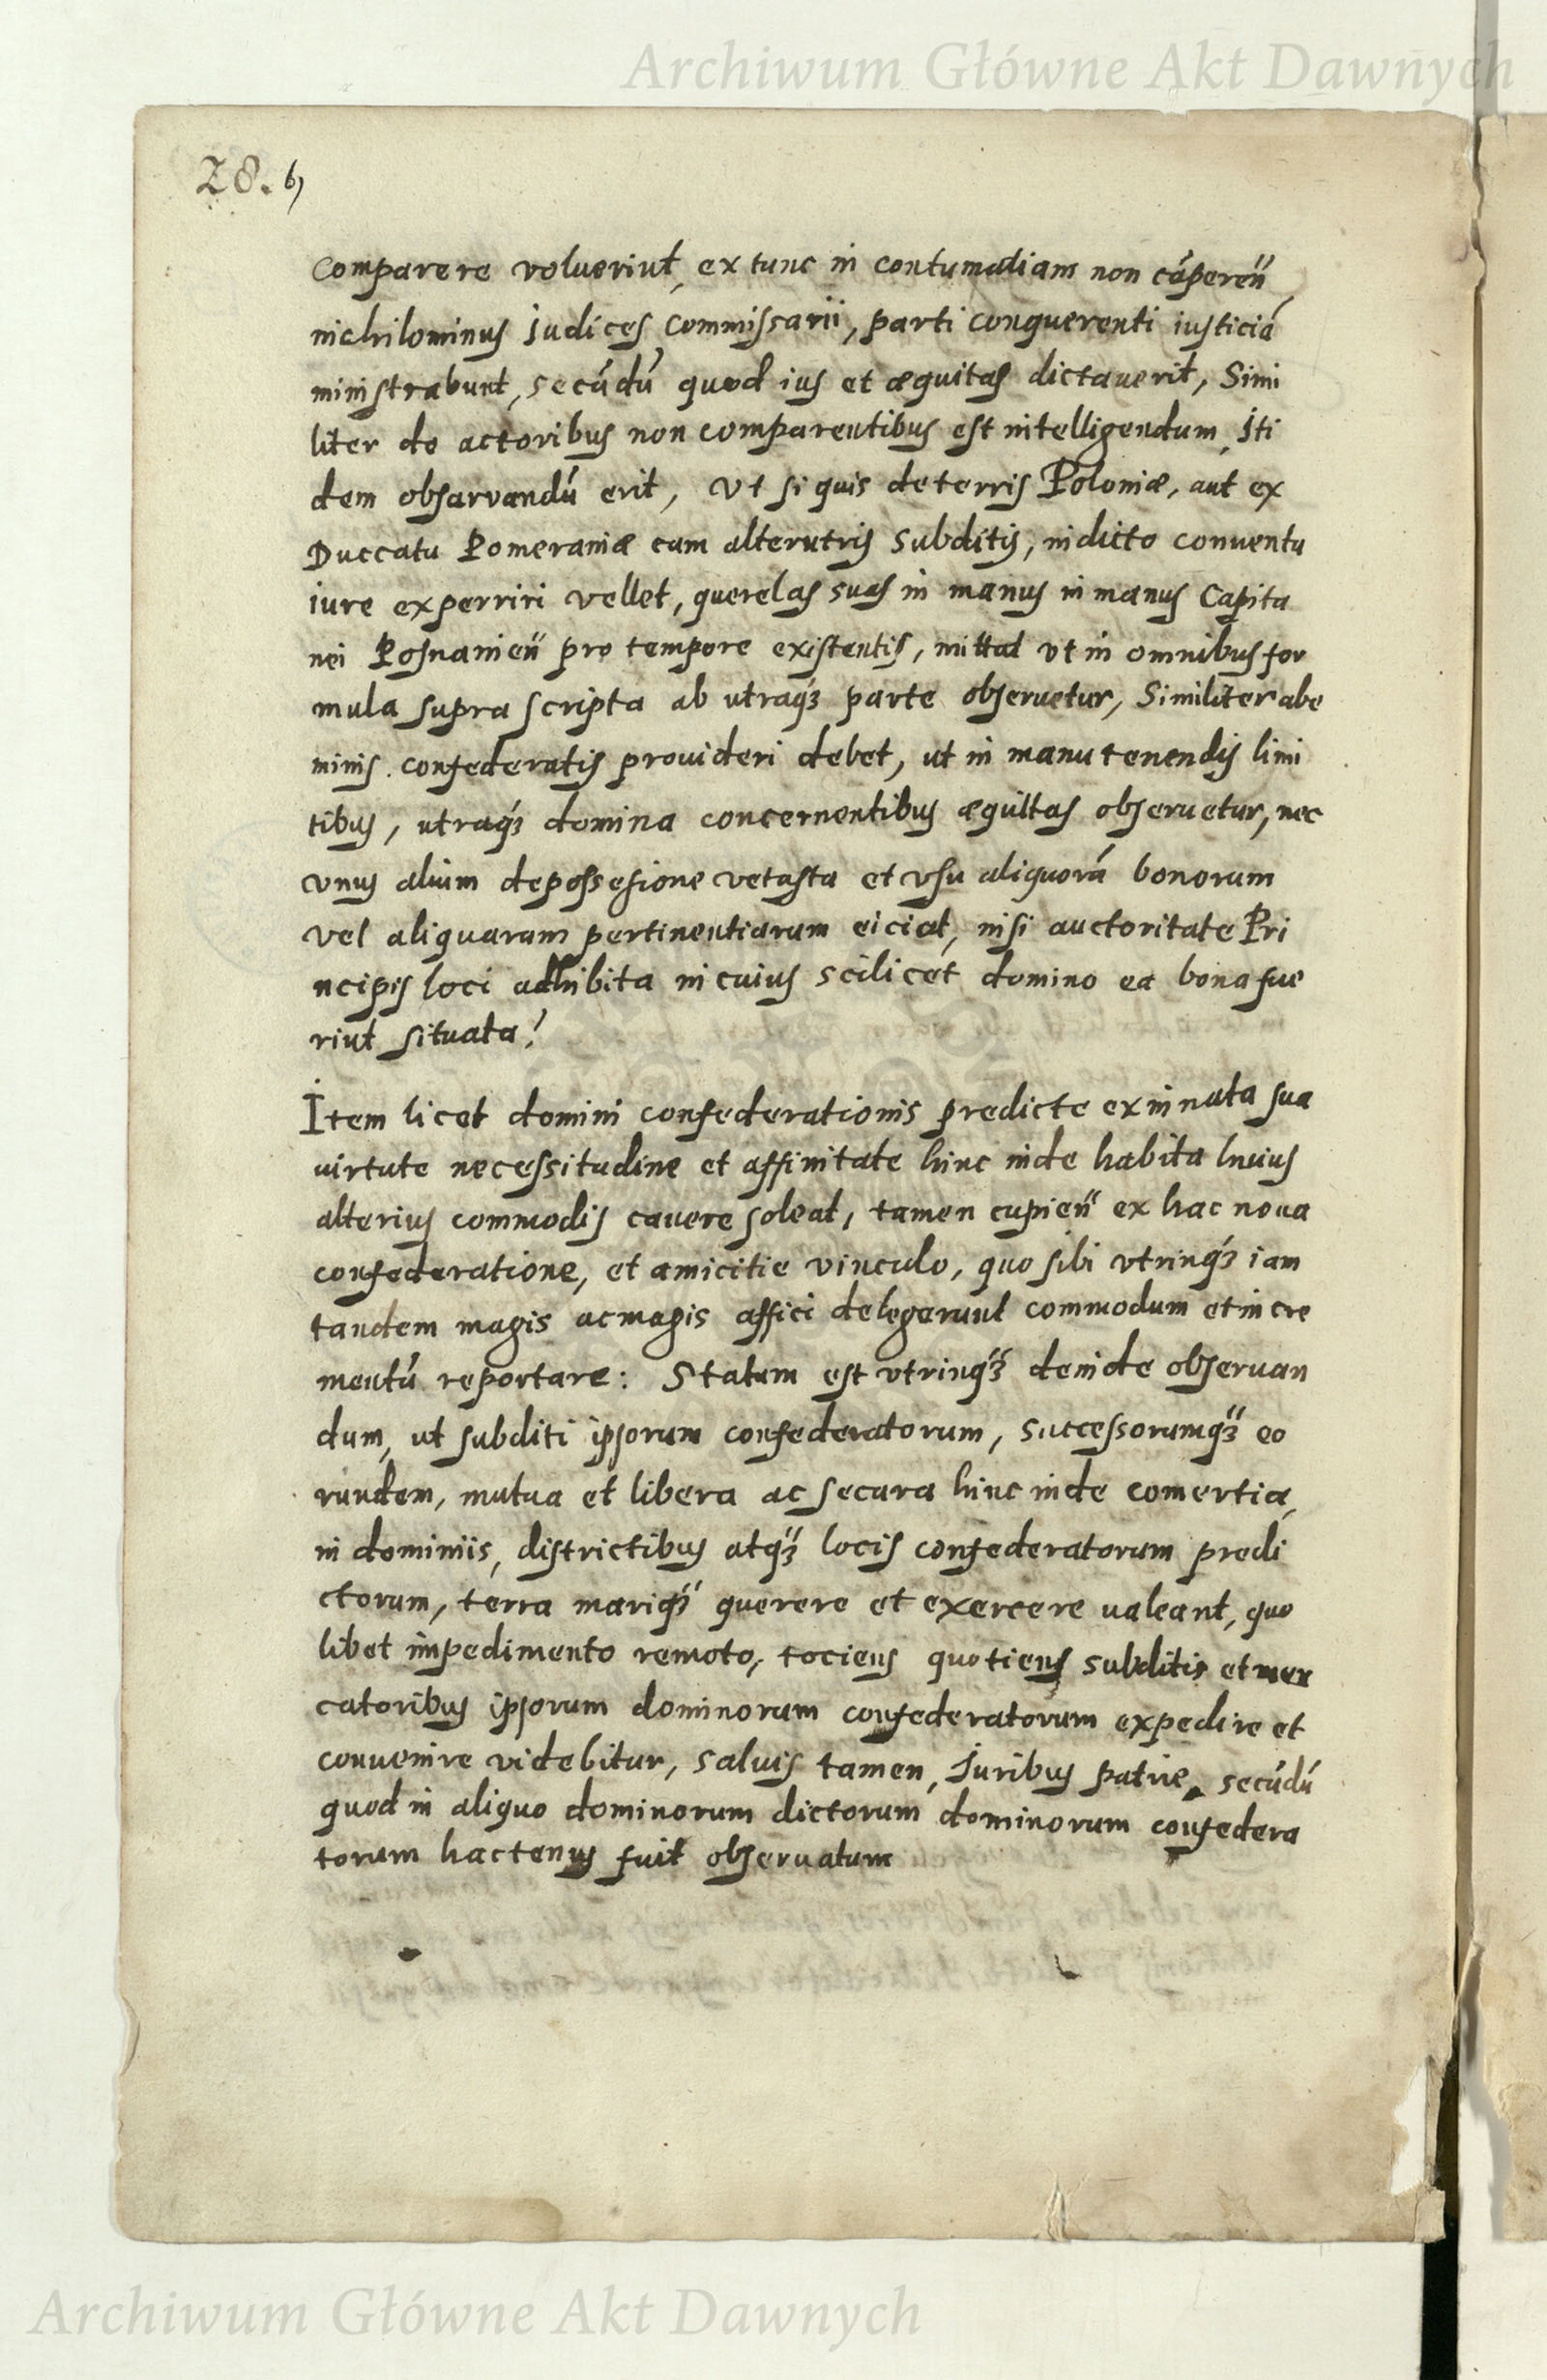 Archiwum Główne Akt Dawnych
28. b
Comparere voluerint, ex tunc in contumatiam non cōperen̄
nichilominus Judices Commissarii, parti conquerenti iusticiā
ministrabunt, secūdū quod ius et æquitas dictauerit, Simi
liter de actoribus non comparentibus est intelligendum, Iti
dem obsarvandū erit, Vt si quis de terris Poloniæ, aut ex
Duccatu Pomeraniæ cum alterutris subditis, in dicto conuentu
iure experriri vellet, querelas suas in manus in manus Capita
nei Posnanien̄ pro tempore existentis, mittat vt in omnibus for
mula supra scripta ab utraqȝ parte obseruetur, Similiter abe
minis confederatis prouideri debet, ut in manutenendis limi
tibus, utraqȝ domina concernentibus æquitas obseruetur, nec
vnus alium de possesione vetasta et vsu aliquorū bonorum
vel aliquarum pertinentiarum eiciat, nisi auctoritate Pri
ncipis loci adhibita in cuius scilicet domino ea bona fue
rint situata!
Item licet domini confederationis predicte ex innata sua
virtute necessitudine et affinitate hinc inde habita huius
alterius commodis cauere soleat, tamen cupien̄ ex hac noua
confederatione, et amicitie vinculo, quo sibi vtrinqȝ iam
tandem magis ac magis affici delegerunt commodum et incre
mentū reportare: Statum est vtrinqȝ deinde obseruan
dum, ut subditi ipsorum confederatorum, successorumqȝ eo
rundem, mutua et libera ac secura hinc inde comertia,
in dominiis, districtibus atqȝ locis confederatorum predi
ctorum, terra mariqȝ querere et exercere ualeant, quo
libet impedimento remoto, tociens quotiens subditis et mer
catoribus ipsorum dominorum confederatorum expedire et
conuenire videbitur, saluis tamen, Juribus patrie, secūdū
quod in aliquo dominorum dictorum dominorum confedera
torum hactenus fuit obseruatum
Archiwum Główne Akt Dawnych